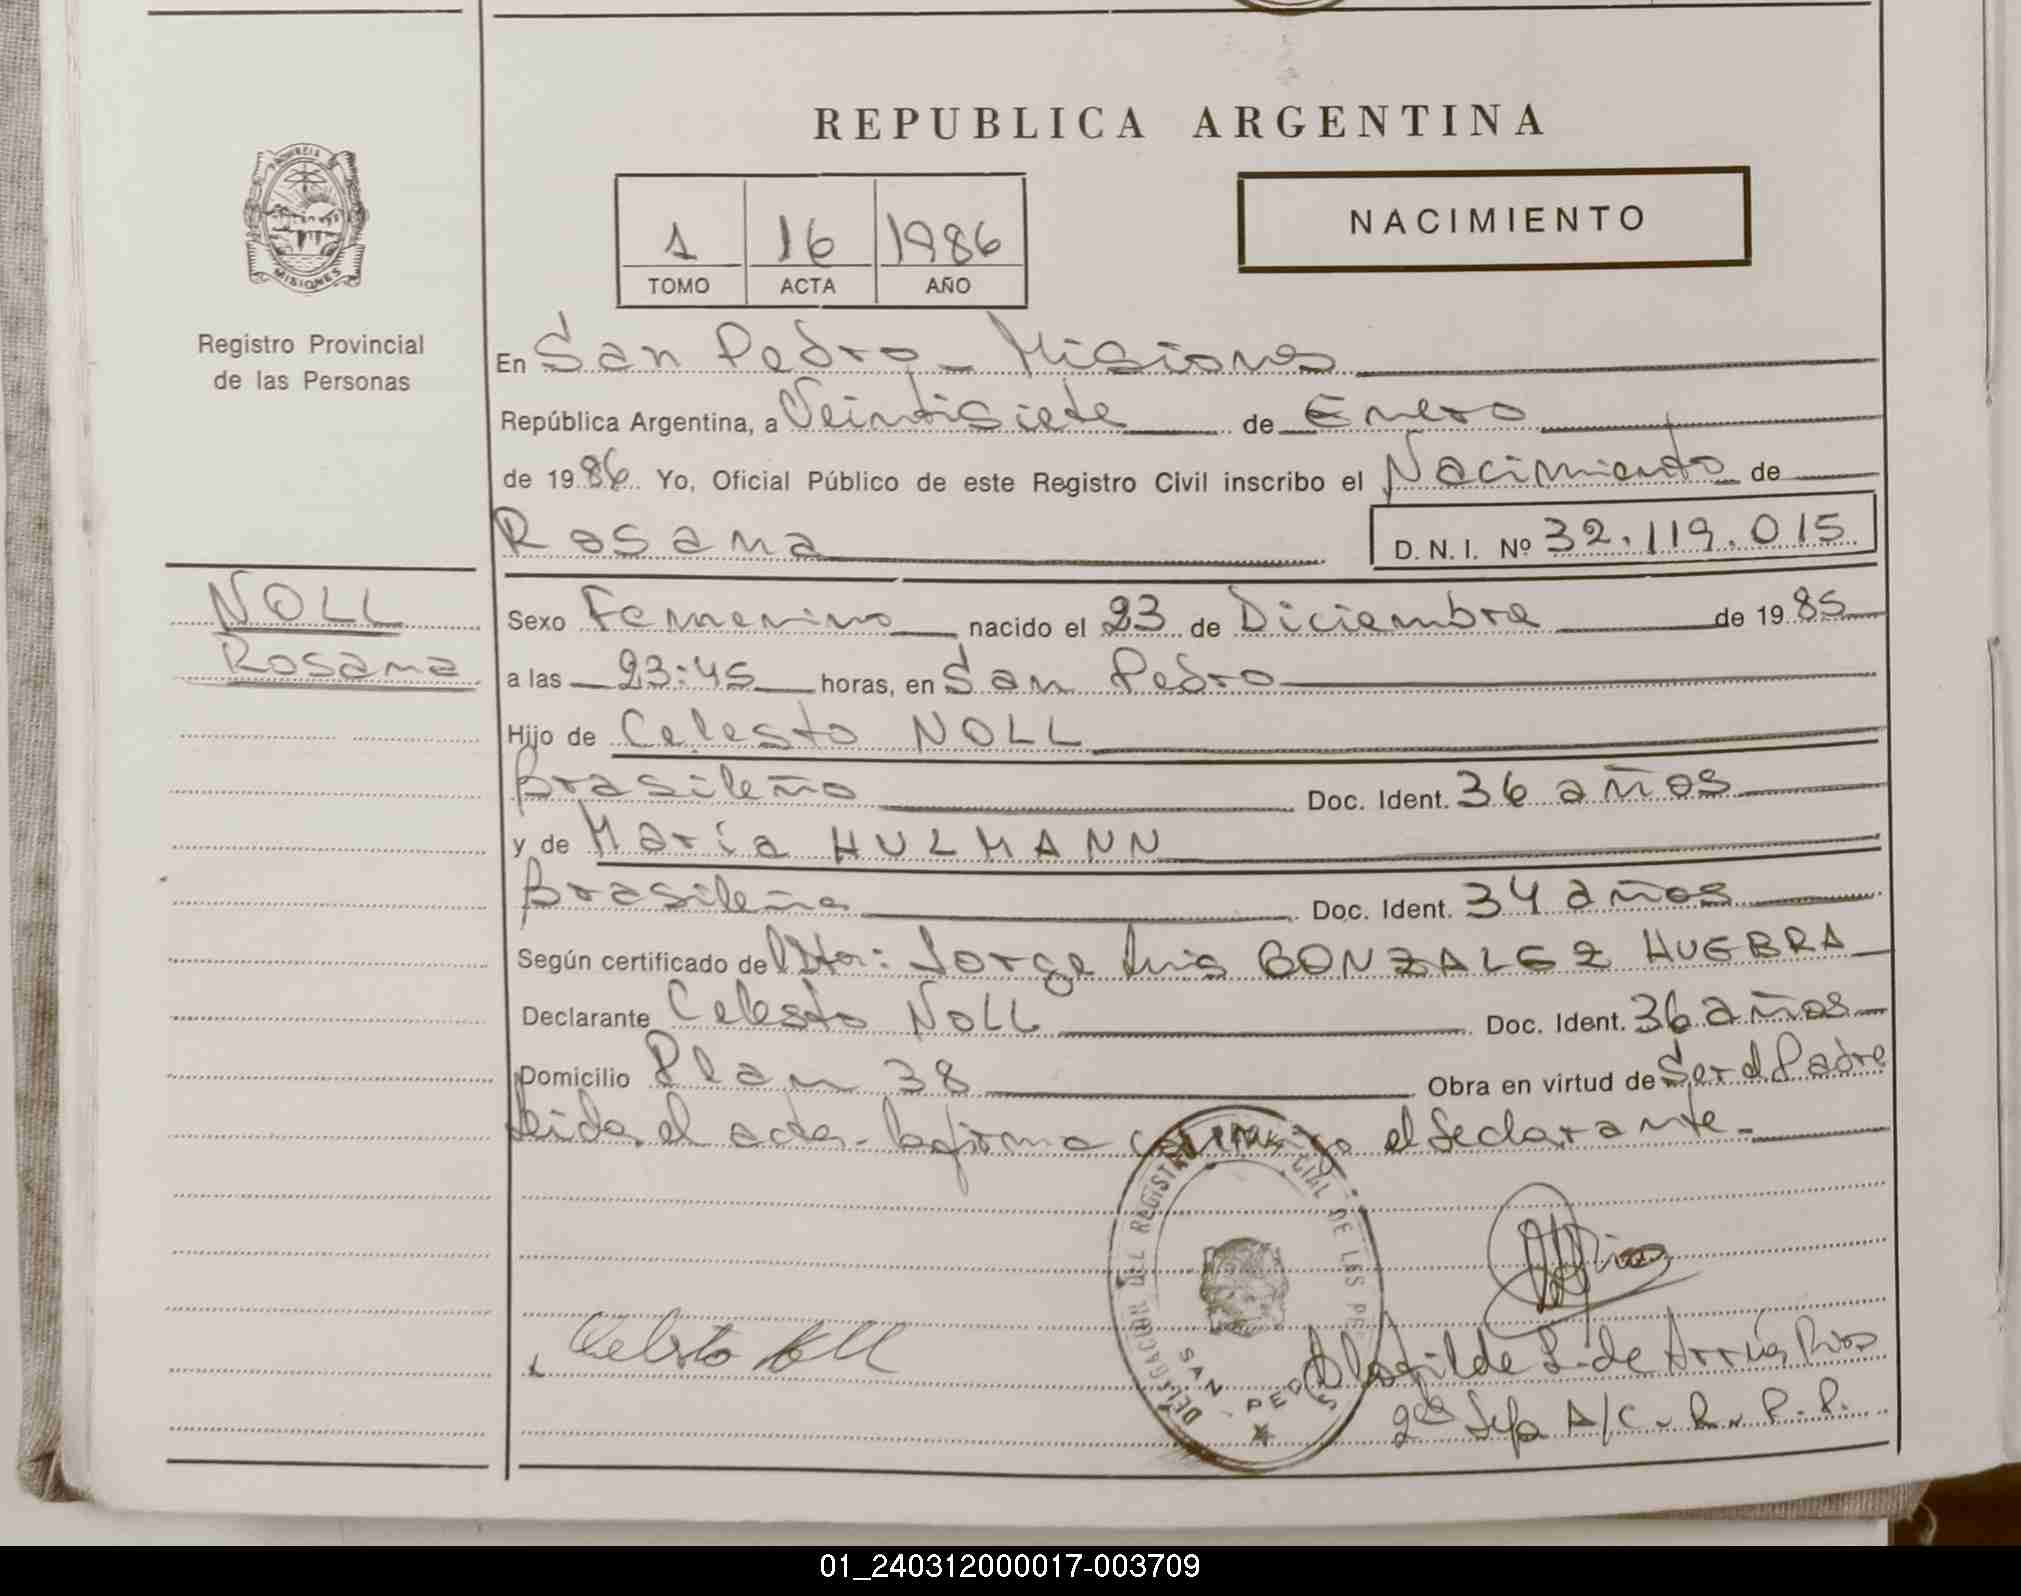 REPUBLICA ARGENTINA
PROVINCIA
MISIONES
Registro Provincial
de las Personas
1 16 1986
TOMO ACTA AÑO
NACIMIENTO
En San Pedro - Misiones
República Argentina, a Veintisiete de Enero
de 1986 Yo, Oficial Público de este Registro Civil inscribo el Nacimiento de
Rosana D. N. I. Nº 32.119.015
NOLL
Rosana
Sexo Femenino nacido el 23 de Diciembre de 1985
a las 23:45 horas, en San Pedro
Hijo de Celesto NOLL
Brasileño Doc. Ident. 36 años
y de María HULMANN
Brasileña Doc. Ident. 34 años
Según certificado de Jorge Luis GONZALEZ HUEBRA
Declarante Celesto NOLL Doc. Ident. 36 años
Domicilio Plan 38 Obra en virtud de Ser el Padre
Leida el acta - la firma conmigo el declarante -
DELEGACION DEL REGISTRO CIVIL DE LAS
SAN PEDRO
Celesto Noll
Clotilde L. de Arrúa Rios
2da Jefa A/C. R. P. P.
01_240312000017-003709